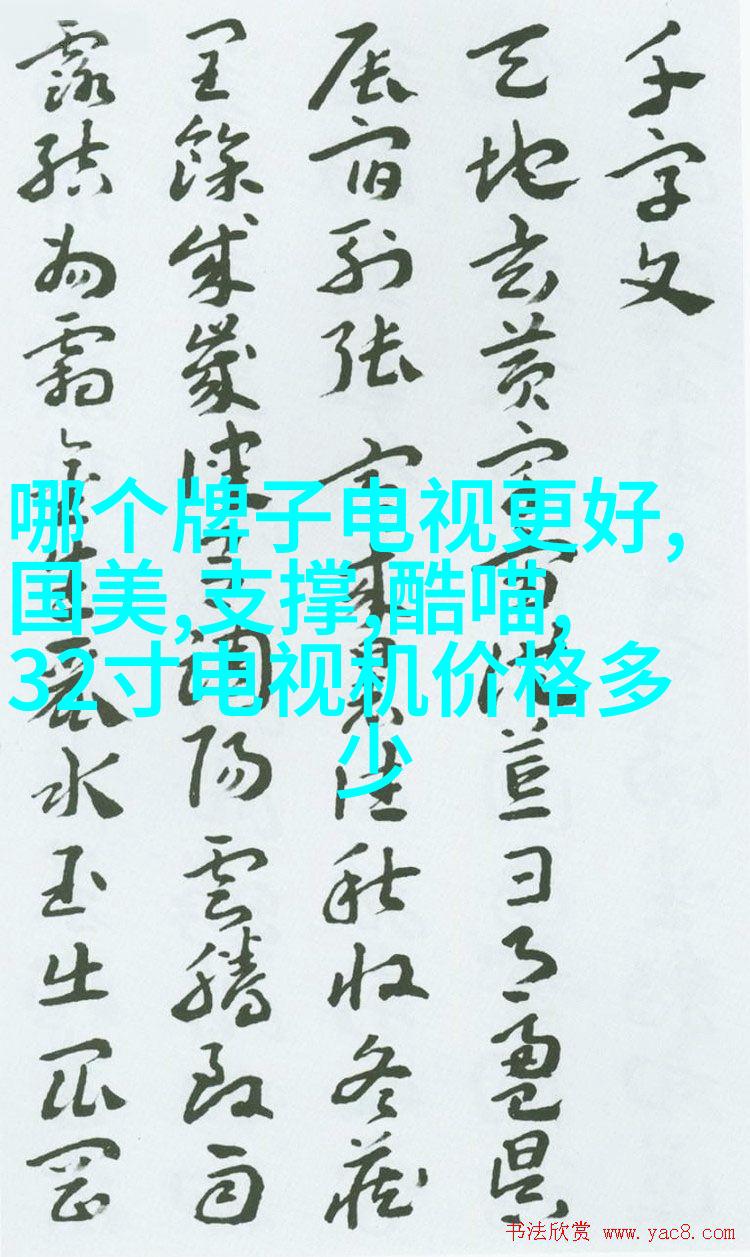 千字文
天地玄黃宇宙洪荒日月盈昃
辰宿列張寒來暑往秋收冬藏
閏餘成歲律呂調陽雲騰致雨
露結為霜金生麗水玉出崑岡
哪个牌子电视更好,
国美,支撑,酷喵,
32寸电视机价格多
少
书法欣赏 www.yac8.com